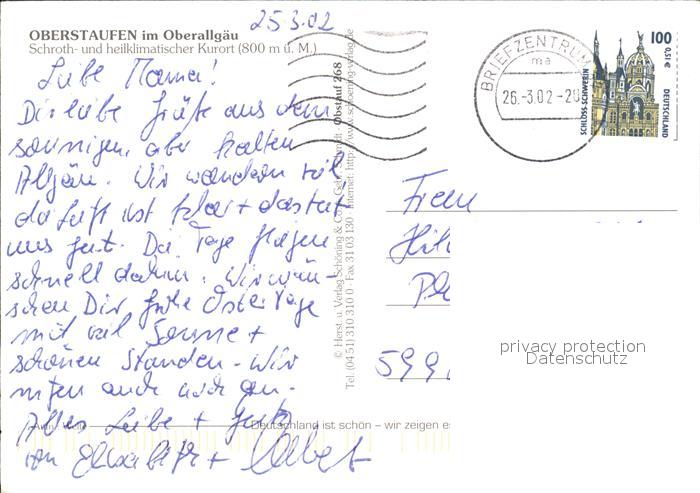 25.3.02
OBERSTAUFEN im Oberallgäu
Schroth- und heilklimatischer Kurort (800 m ü. M.)
Liebe Mama!
Dir liebe Grüße aus dem
sonnigen, aber kalten
Allgäu. Wir wandern viel
da Luft ist klar + das tut
uns gut. Die Tage fliegen
schnell dahin. Wir wün-
schen Dir frohe Ostertage
mit viel Sonne +
schönen Stunden. Wir
rufen auch noch an.
Alles Liebe + Gute
von Elisabeth +
Deutschland ist schön – wir zeigen es
© Herst. u. Verlag Schöning & Co
Obstauf 268
Tel. (04 51) 310 310 0 · Fax 31 03 130 · Internet: http://www.schoening-verlag.de
BRIEFZENTRUM
ma
26.-3.02-20
100
0,51 €
SCHLOSS SCHWERIN
DEUTSCHLAND
Frau
599
privacy protection
Datenschutz